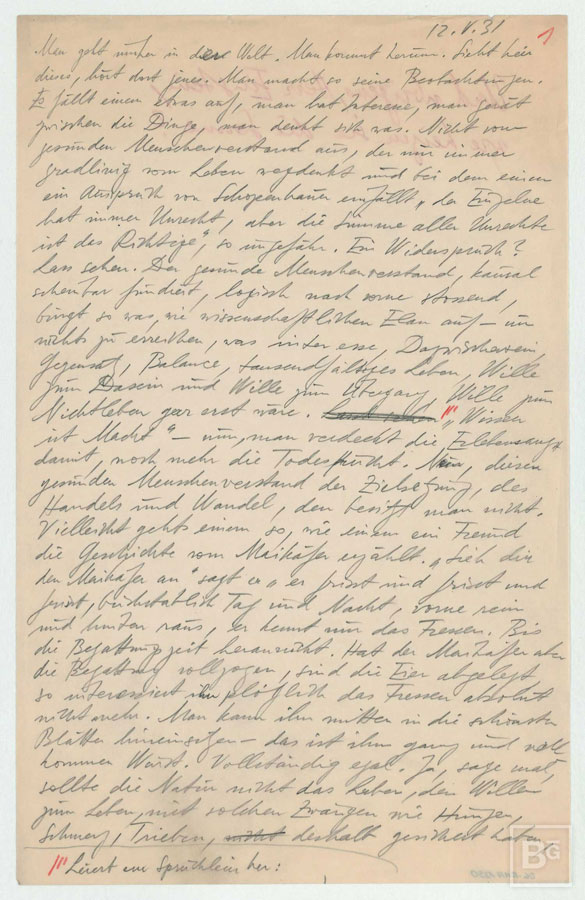 12.V.31 1
Man geht umher in diese Welt. Man kommt herum. Sieht hier
dieses, hört dort jenes. Man macht so seine Beobachtungen.
Es fällt einem etwas auf, man hat Interesse, man gerät
zwischen die Dinge, man denkt sich was. Nicht vom
gesunden Menschenverstand aus, der nur immer
gradlinig vom Leben wegdenkt und bei dem einem
ein Ausspruch von Schopenhauer einfällt „der Einzelne
hat immer Unrecht, aber die Summe aller Unrechte
ist das Richtige", so ungefähr. Ein Widerspruch?
Lass sehen. Der gesunde Menschenverstand, kausal
scheinbar fundiert, logisch nach vorne stossend,
bringt so was, wie wissenschaftlichen Elan auf – um
nichts zu erreichen, was inter esse, Dazwischensein,
Gegensatz, Balance, tausendfältiges Leben, Wille
zum Dasein und Wille zum Übergang, Wille zum
Nichtleben gar erst wäre. "Wissen
ist Macht" – nun, man verdeckt die Erlebensangst
damit, noch mehr die Todesfurcht. Nun, diesen
gesunden Menschenverstand der Zielsetzung, des
Handels und Wandel, den besitzt man nicht.
Vielleicht gehts einem so, wie einem ein Freund
die Geschichte vom Maikäfer erzählt. „Sieh dir
den Maikäfer an" sagt er „er frisst und frisst und
frisst, buchstäblich Tag und Nacht, vorne rein
und hinten raus, er kennt nur das Fressen. Bis
die Begattungszeit heranrückt. Hat der Maikäfer aber
die Begattung vollzogen, sind die Eier abgelegt
so interessiert ihn plötzlich das Fressen absolut
nicht mehr. Man kann ihn mitten in die schönsten
Blätter hineinsetzen – das ist ihm ganz und voll
kommen Wurst. Vollständig egal. Ja, sage mal,
sollte die Natur nicht das Leben, den Willen
zum Leben, mit solchen Zwängen wie Hunger,
Schmerz, Trieben, deshalb gesichert haben,
Leiert ein Sprüchlein her:
BG